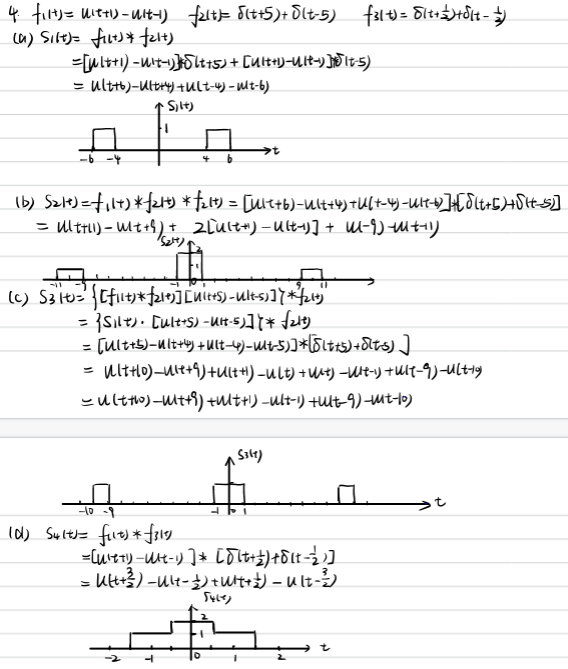 4. f₁(t)= u(t+1)-u(t-1)   f₂(t)= δ(t+5)+δ(t-5)   f₃(t)= δ(t+½)+δ(t-½)
(a) S₁(t)= f₁(t)*f₂(t)
=[u(t+1)-u(t-1)]*δ(t+5)+[u(t+1)-u(t-1)]*δ(t-5)
= u(t+6)-u(t+4)+u(t-4)-u(t-6)
S₁(t)
1
-6 -4 4 6 t
(b) S₂(t)=f₁(t)*f₂(t)*f₂(t)=[u(t+6)-u(t+4)+u(t-4)-u(t-6)]*[δ(t+5)+δ(t-5)]
= u(t+11)-u(t+9)+2[u(t+1)-u(t-1)]+u(t-9)-u(t-11)
S₂(t)
2
-11 -9 -1 0 1 9 11
(c) S₃(t)={[f₁(t)*f₂(t)][u(t+5)-u(t-5)]}*f₂(t)
={S₁(t)·[u(t+5)-u(t-5)]}*f₂(t)
=[u(t+5)-u(t+4)+u(t-4)-u(t-5)]*[δ(t+5)+δ(t-5)]
= u(t+10)-u(t+9)+u(t+1)-u(t)+u(t)-u(t-1)+u(t-9)-u(t-10)
= u(t+10)-u(t+9)+u(t+1)-u(t-1)+u(t-9)-u(t-10)
S₃(t)
-10 -9 -1 0 1 t
(d) S₄(t)= f₁(t)*f₃(t)
=[u(t+1)-u(t-1)]*[δ(t+½)+δ(t-½)]
= u(t+3/2)-u(t-½)+u(t+½)-u(t-3/2)
S₄(t)
2
1
-2 -1 0 1 2 t